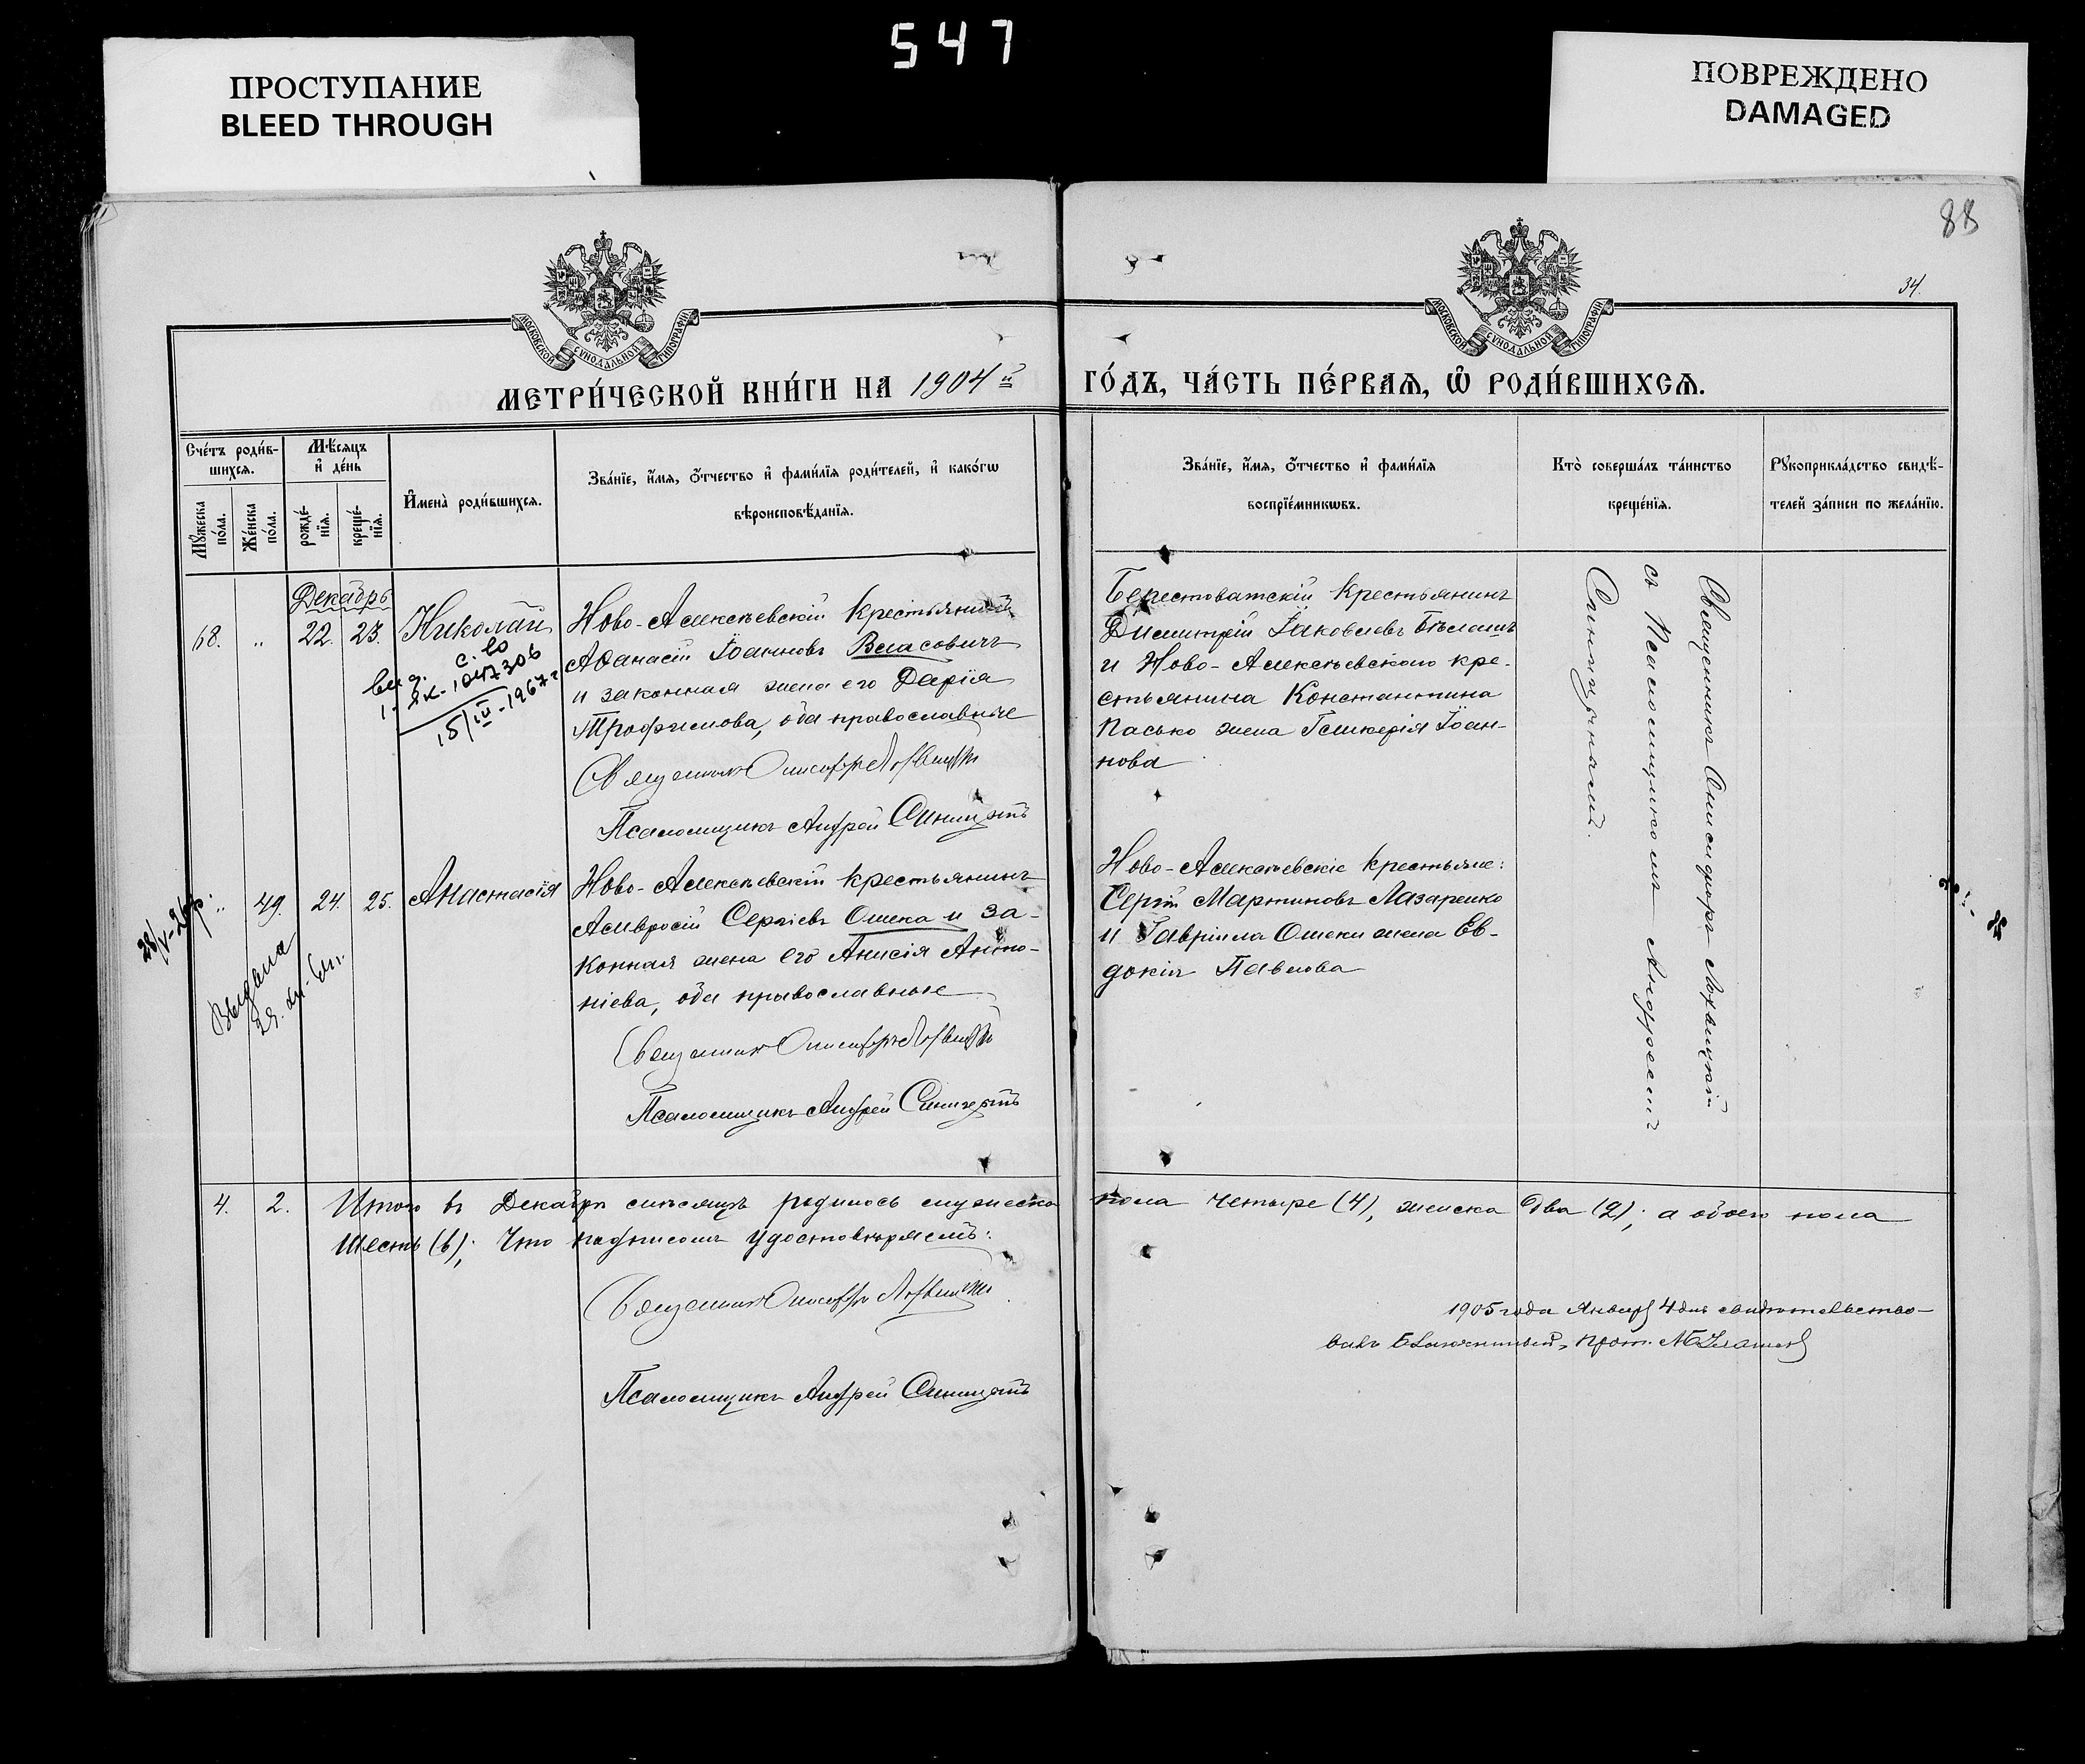 547
ПРОСТУПАНИЕ
BLEED THROUGH
ПОВРЕЖДЕНО
DAMAGED
88
34.
МОСКОВСКОЙ СѴНОДАЛЬНОЙ ТИПОГРАФІИ
МОСКОВСКОЙ СѴНОДАЛЬНОЙ ТИПОГРАФІИ
МЕТРИ́ЧЕСКОЙ КНИ́ГИ НА 1904 й
ГО́ДЪ, ЧА́СТЬ ПЕ́РВАѦ, Ѽ РОДИ́ВШИХСѦ.
Сче́тъ роди́в-
шихсѧ.
Мѣ́сѧцъ
и҆ де́нь
Мꙋ́жеска
по́ла.
Же́нска
по́ла.
рожде́-
нїѧ.
креще́-
нїѧ.
И҆мена̀ роди́вшихсѧ.
Зва́нїе, и҆́мѧ, ѻ҆́тчество и҆ фами́лїѧ роди́телей, и҆ како́гѡ
вѣроисповѣ́данїѧ.
Зва́нїе, и҆́мѧ, ѻ҆́тчество и҆ фами́лїѧ
воспрїе́мникѡвъ.
Кто̀ соверша́лъ та́инство
креще́нїѧ.
Рꙋкоприкла́дство свидѣ́-
телей за́писи по жела́нїю.
Декабрь
68. „ 22. 23. Николай
выд.
1047306
15/III-1967 г
Ново-Алексѣевскій крестьянинъ
Аѳанасій Іоанновъ Власовичъ
и законная жена его Дарія
Трофимова, оба православные
Священникъ Онисифоръ
Псаломщикъ Андрей
Берестоватскій крестьянинъ
Димитрій Іаковлевъ Бѣлашъ
и Ново-Алексѣевскаго кре-
стьянина Константина
Пасько жена Гликерія Іоан-
нова
Священникъ Онисифоръ
съ Псаломщикомъ Андреемъ
„ 49. 24. 25. Анастасія
Выдана
Ново-Алексѣевскій крестьянинъ
Амвросій Сергіевъ Ошека и за-
конная жена его Анисія Анто-
ніева, оба православные
Священникъ Онисифоръ
Псаломщикъ Андрей
Ново-Алексѣевскіе крестьяне:
Сергій Мартиновъ Лазаренко
и Гавріила Ошеки жена Ев-
докія Павлова
4. 2. Итого въ Декабрѣ мѣсяцѣ родилось мужеска пола четыре (4), женска два (2); а обоего пола
шесть (6); что подписомъ удостовѣряемъ:
Священникъ Онисифоръ
Псаломщикъ Андрей
1905 года Января 4 дня свидѣтельство-
валъ Благочинный, Прот.